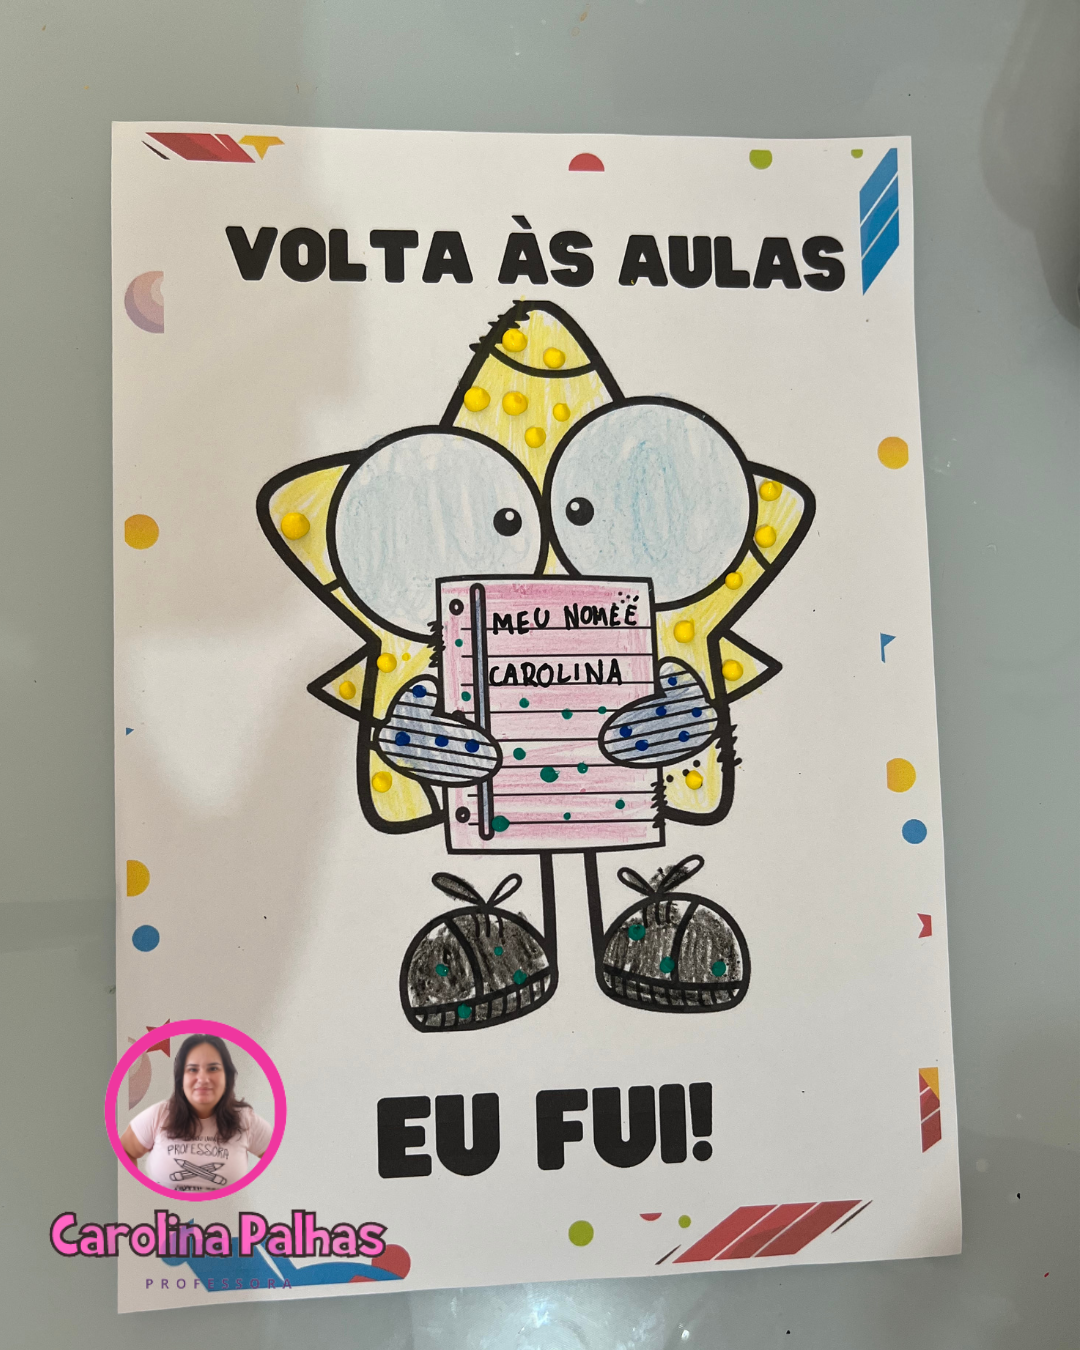 VOLTA ÀS AULAS
MEU NOME É
CAROLINA
EU FUI!
PROFESSORA
Carolina Palhas
PROFESSORA